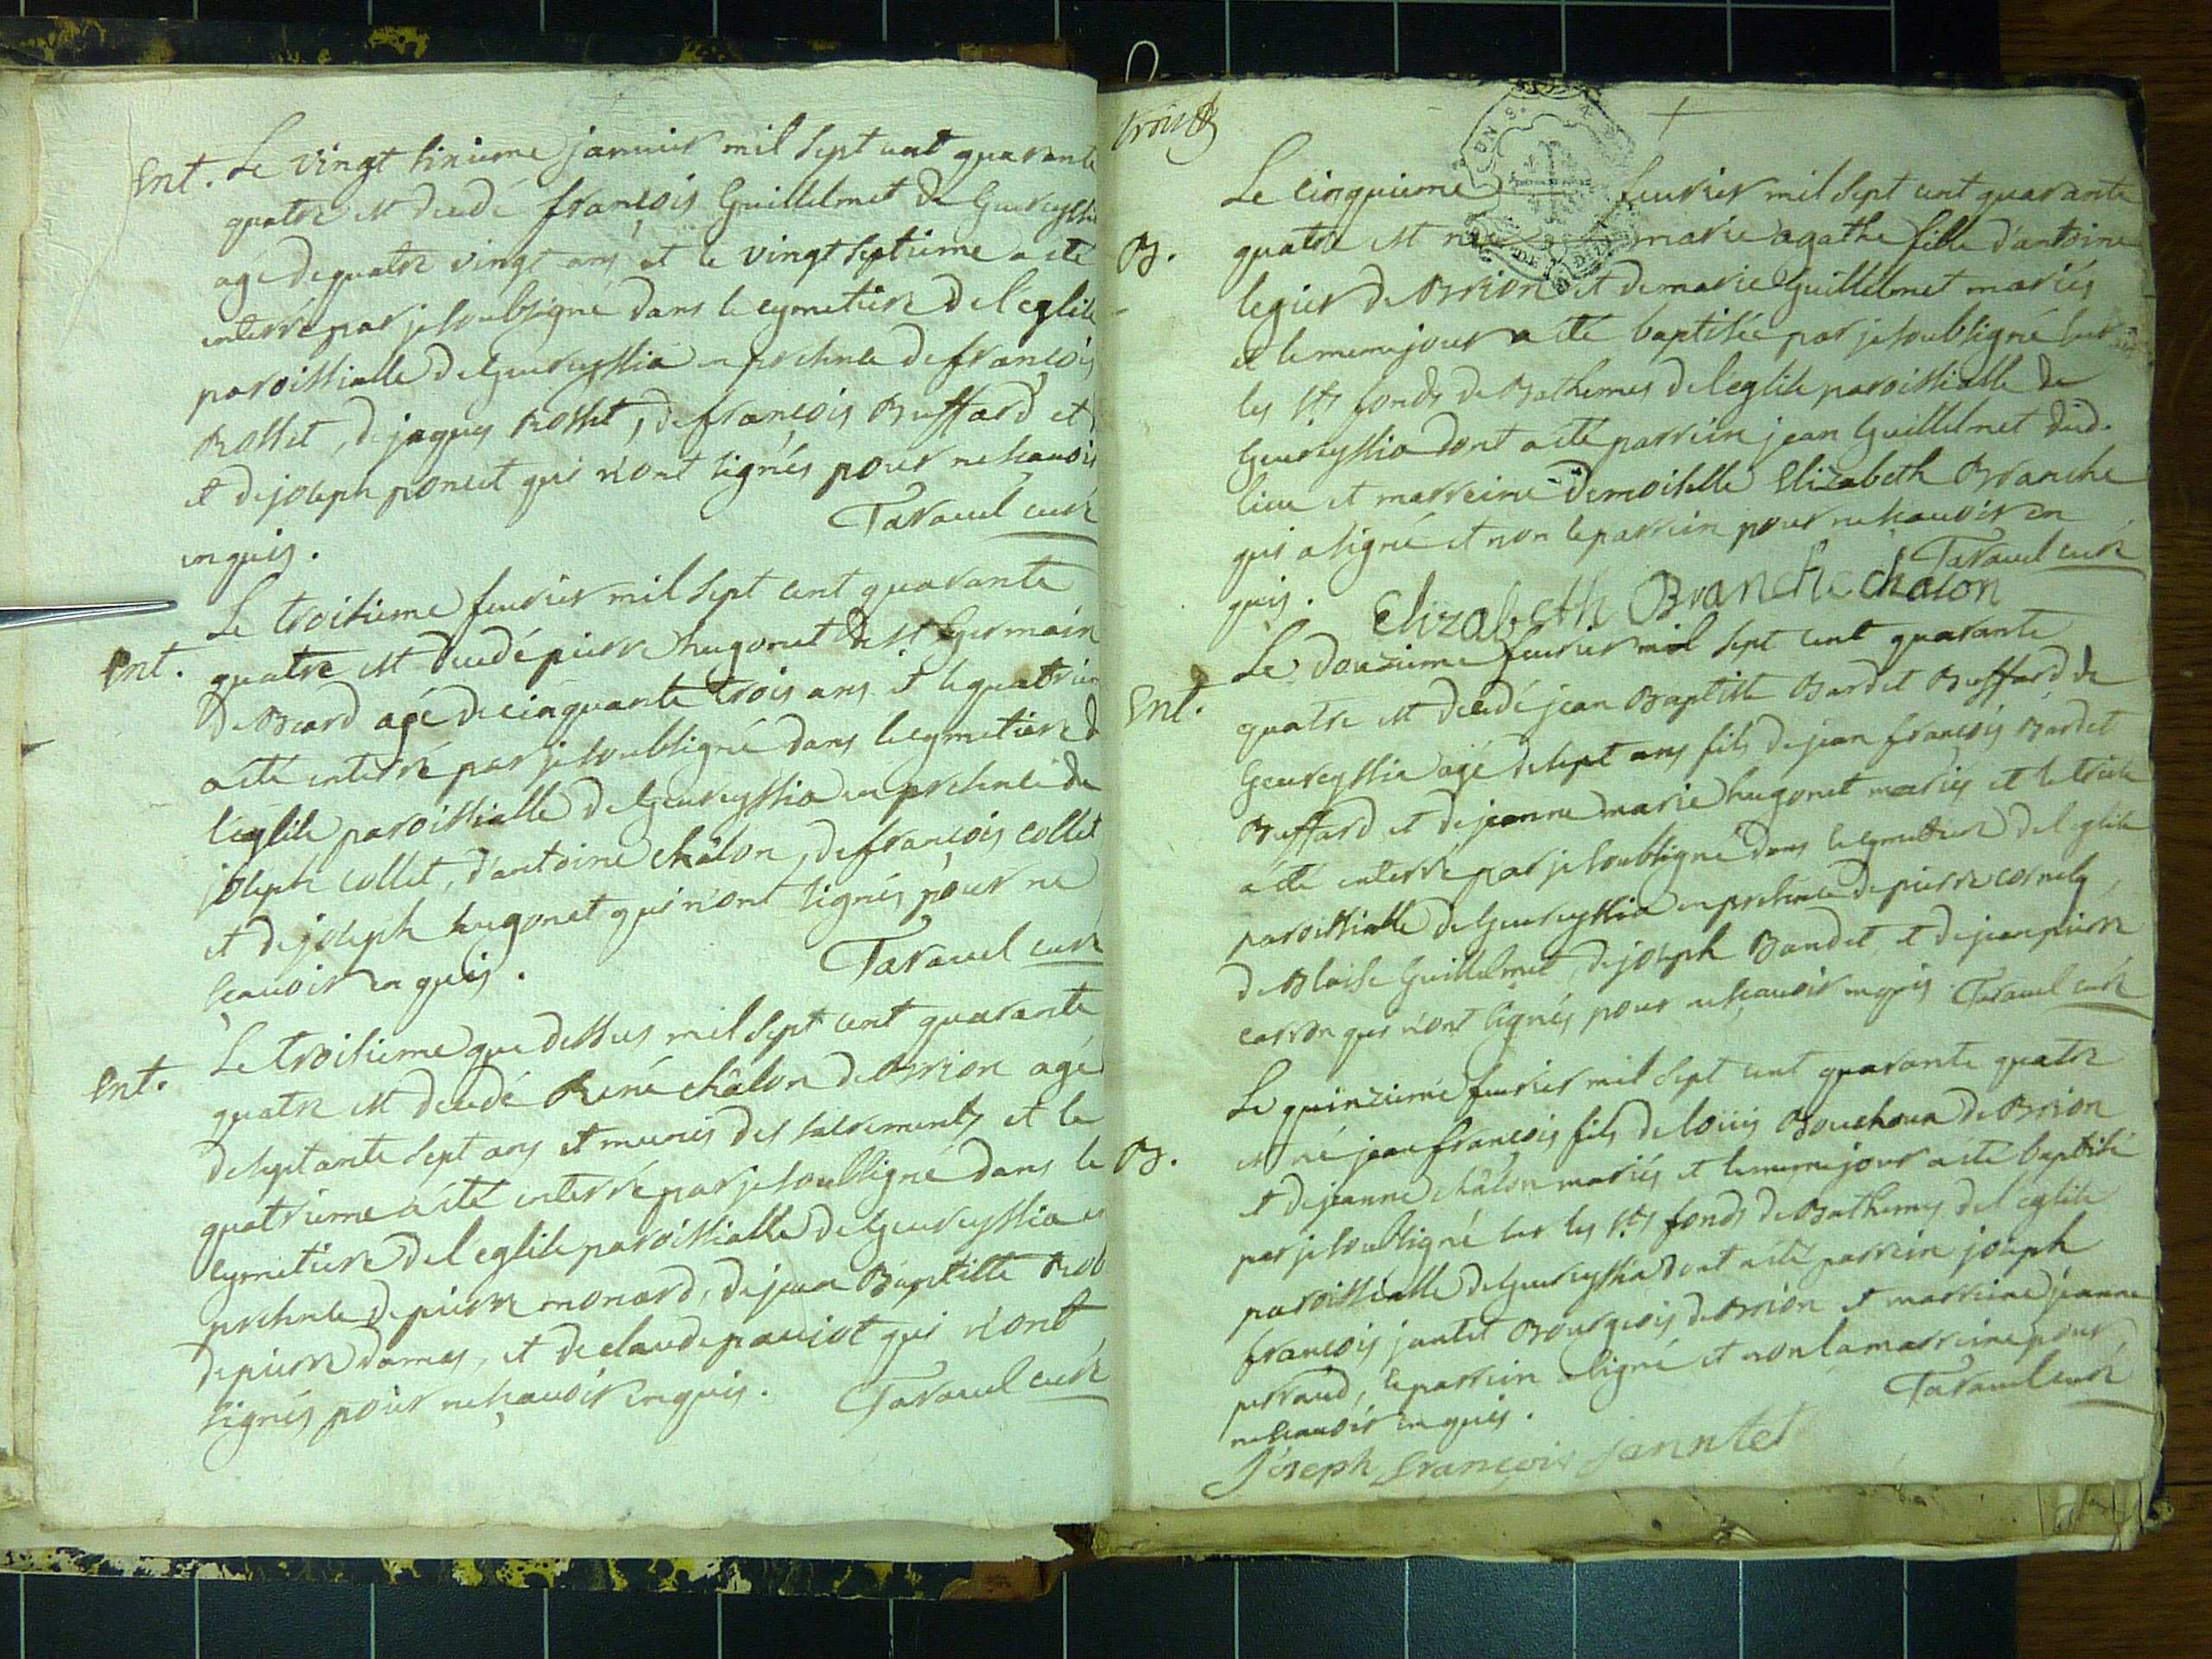 Ent. Le vingt sixieme januier mil sept cent quarante
quatre est decedé françois Guillelmet de Geureyssia
agé de quatre vingt ans et le vingt septieme a eté
enterré par je soubsigné dans le cymetiere de l'eglise
paroissialle de Geureyssia en presence de françois
Rosset, de jaques Rosset, de françois Buffard et
et de joseph poncet qui n'ont signés pour ne scauoir
enquis. Tarauel curé
Le troisieme feurier mil sept cent quarante
Ent. quatre est decedé pierre hugonet de st Germain
de Beard agé de cinquante trois ans et le quatrieme
a eté enterré par je soubsigné dans le cymetiere de
l'eglise paroissialle de Geureyssia en presence de
joseph collet, d'antoine châlon, de françois collet
et de joseph hugonet qui n'ont signés pour ne
scauoir enquis. Tarauel curé
Le troisieme que dessus mil sept cent quarante
Ent. quatre est decedé René châlon de Brion agé
de septante sept ans et munis des sacrements et le
quatrieme a eté enterré par je soubsigné dans le
cymetiere de l'eglise paroissialle de Geureyssia en
presence de pierre monard, de jean Baptiste Rob
de pierre damas, et de claude pauiot qui n'ont
signés pour ne scauoir enquis. Tarauel curé
trois
Le cinquieme feurier mil sept cent quarante
B. quatre est née marie agathe fille d'antoine
legier de Brion et de marie Guillelmet mariés
et le meme jour a eté baptisée par je soubsigné sur
les sts fonds de Bathemes de l'eglise paroissialle de
Geureyssia dont a eté parrein jean Guillelmet dud.
lieu et marreine demoiselle Elizabeth Branche
qui a signé et non le parrein pour ne scauoir en
quis. Tarauel curé
Elizabeth Branche chalon
Le douzieme feurier mil sept cent quarante
Ent. quatre est decedé jean Baptiste Bardet Buffard de
Geureyssia agé de sept ans fils de jean françois Bardet
Buffard et de jeanne marie hugonet mariés et le treize
a eté enterré par je soubsigné dans le cymetiere de l'eglise
paroissialle de Geureyssia en presence de pierre cornely,
de Blaise Guillelmet, de joseph Bandet et de jean pierre
carron qui n'ont signés pour ne scauoir enquis. Tarauel curé
Le quinzieme feurier mil sept cent quarante quatre
B. est né jean françois fils de loüis Bouchoux de Brion
et de jeanne châlon mariés et le meme jour a eté baptisé
par je soubsigné sur les sts fonds de Bathemes de l'eglise
paroissialle de Geureyssia dont a eté parrein joseph
françois jantet Bourgeois de Brion et marreine jeanne
perraud, le parrein a signé et non la marreine pour
ne scauoir enquis. Tarauel curé
Joseph françois Janntet